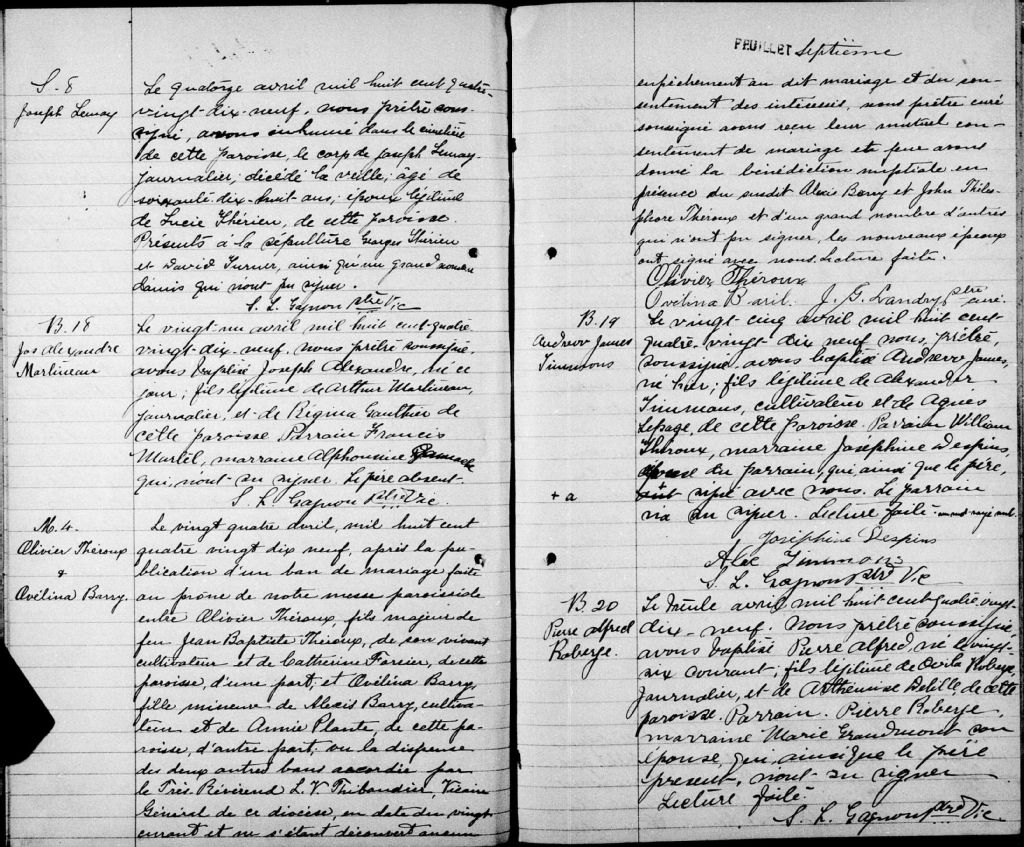 S. 8
Joseph Lemay
Le quatorze avril mil huit cent quatre-
vingt-dix-neuf, nous prêtre sous-
signé, avons inhumé dans le cimetière
de cette paroisse, le corp de Joseph Lemay
journalier, décédé la veille, âgé de
soixante-dix-huit ans, époux légitime
de Lucie Thérien, de cette paroisse.
Présents à la sépulture Georges Thérien
et David Turner, ainsi qu'un grand nombre
d'amis qui n'ont pu signer.
S. L. Gagnon ptre Vic
B. 18
Jos Alexandre
Martineau
Le vingt-un avril mil huit cent quatre
vingt-dix-neuf, nous prêtre soussigné,
avons baptisé Joseph Alexandre, né ce
jour, fils légitime de Arthur Martineau,
journalier, et de Régina Gauthier de
cette paroisse Parrain Francis
Martel, marraine Alphonsine
qui, n'ont su signer. Le père absent.
S. L. Gagnon ptre Vic.
M. 4.
Olivier Théroux
&
Ovélina Barry.
Le vingt quatre avril, mil huit cent
quatre vingt dix neuf, après la pu-
blication d'un ban de mariage faite
au prône de notre messe paroissiale
entre Olivier Théroux, fils majeur de
feu Jean Baptiste Théroux, de son vivant
cultivateur et de Catherine Forcier, de cette
paroisse, d'une part, et Ovélina Barry,
fille mineure de Alexis Barry, cultiva-
teur et de Annie Plante, de cette pa-
roisse, d'autre part, vu la dispense
des deux autres bans accordée par
le Très Révérend L. V. Thibaudier, Vicaire
Général de ce diocèse, en date du vingt
courant et ne s'étant découvert aucun
FEUILLET Septième
empêchement au dit mariage et du con-
sentement des intéressés, nous prêtre curé
soussigné avons reçu leur mutuel con-
sentement de mariage et leur avons
donné la bénédiction nuptiale en
présence du susdit Alexis Barry et John Théles-
phore Théroux et d'un grand nombre d'autres
qui n'ont pu signer, les nouveaux époux
ont signé avec nous. Lecture faite.
Olivier Théroux
Ovélina Baril. J. G. Landry ptre curé.
B. 19
Andrew James
Timmons
Le vingt cinq avril mil huit cent
quatre-vingt-dix neuf nous, prêtre,
soussigné, avons baptisé Andrew James,
né hier, fils légitime de Alexander
Timmons, cultivateur et de Agnes
Lepage, de cette paroisse. Parrain William
Théroux, marraine Joséphine Despins,
épouse du parrain, qui ainsi que le père,
+ a
ont signé avec nous. Le parrain
n'a su signer. Lecture faite.
Joséphine Despins
Alex Timmons
S. L. Gagnon ptre Vic
B. 20
Pierre Alfred
Roberge.
Le trente avril mil huit cent quatre vingt-
dix-neuf. Nous prêtre soussigné,
avons baptisé Pierre Alfred, né le vingt-
six courant, fils légitime de Roberge,
journalier, et de Arthémise Delille de cette
paroisse. Parrain. Pierre Roberge,
marraine Marie Grandmont son
épouse, qui, ainsi que le père
présent, n'ont su signer
Lecture faite.
S. L. Gagnon ptre Vic.